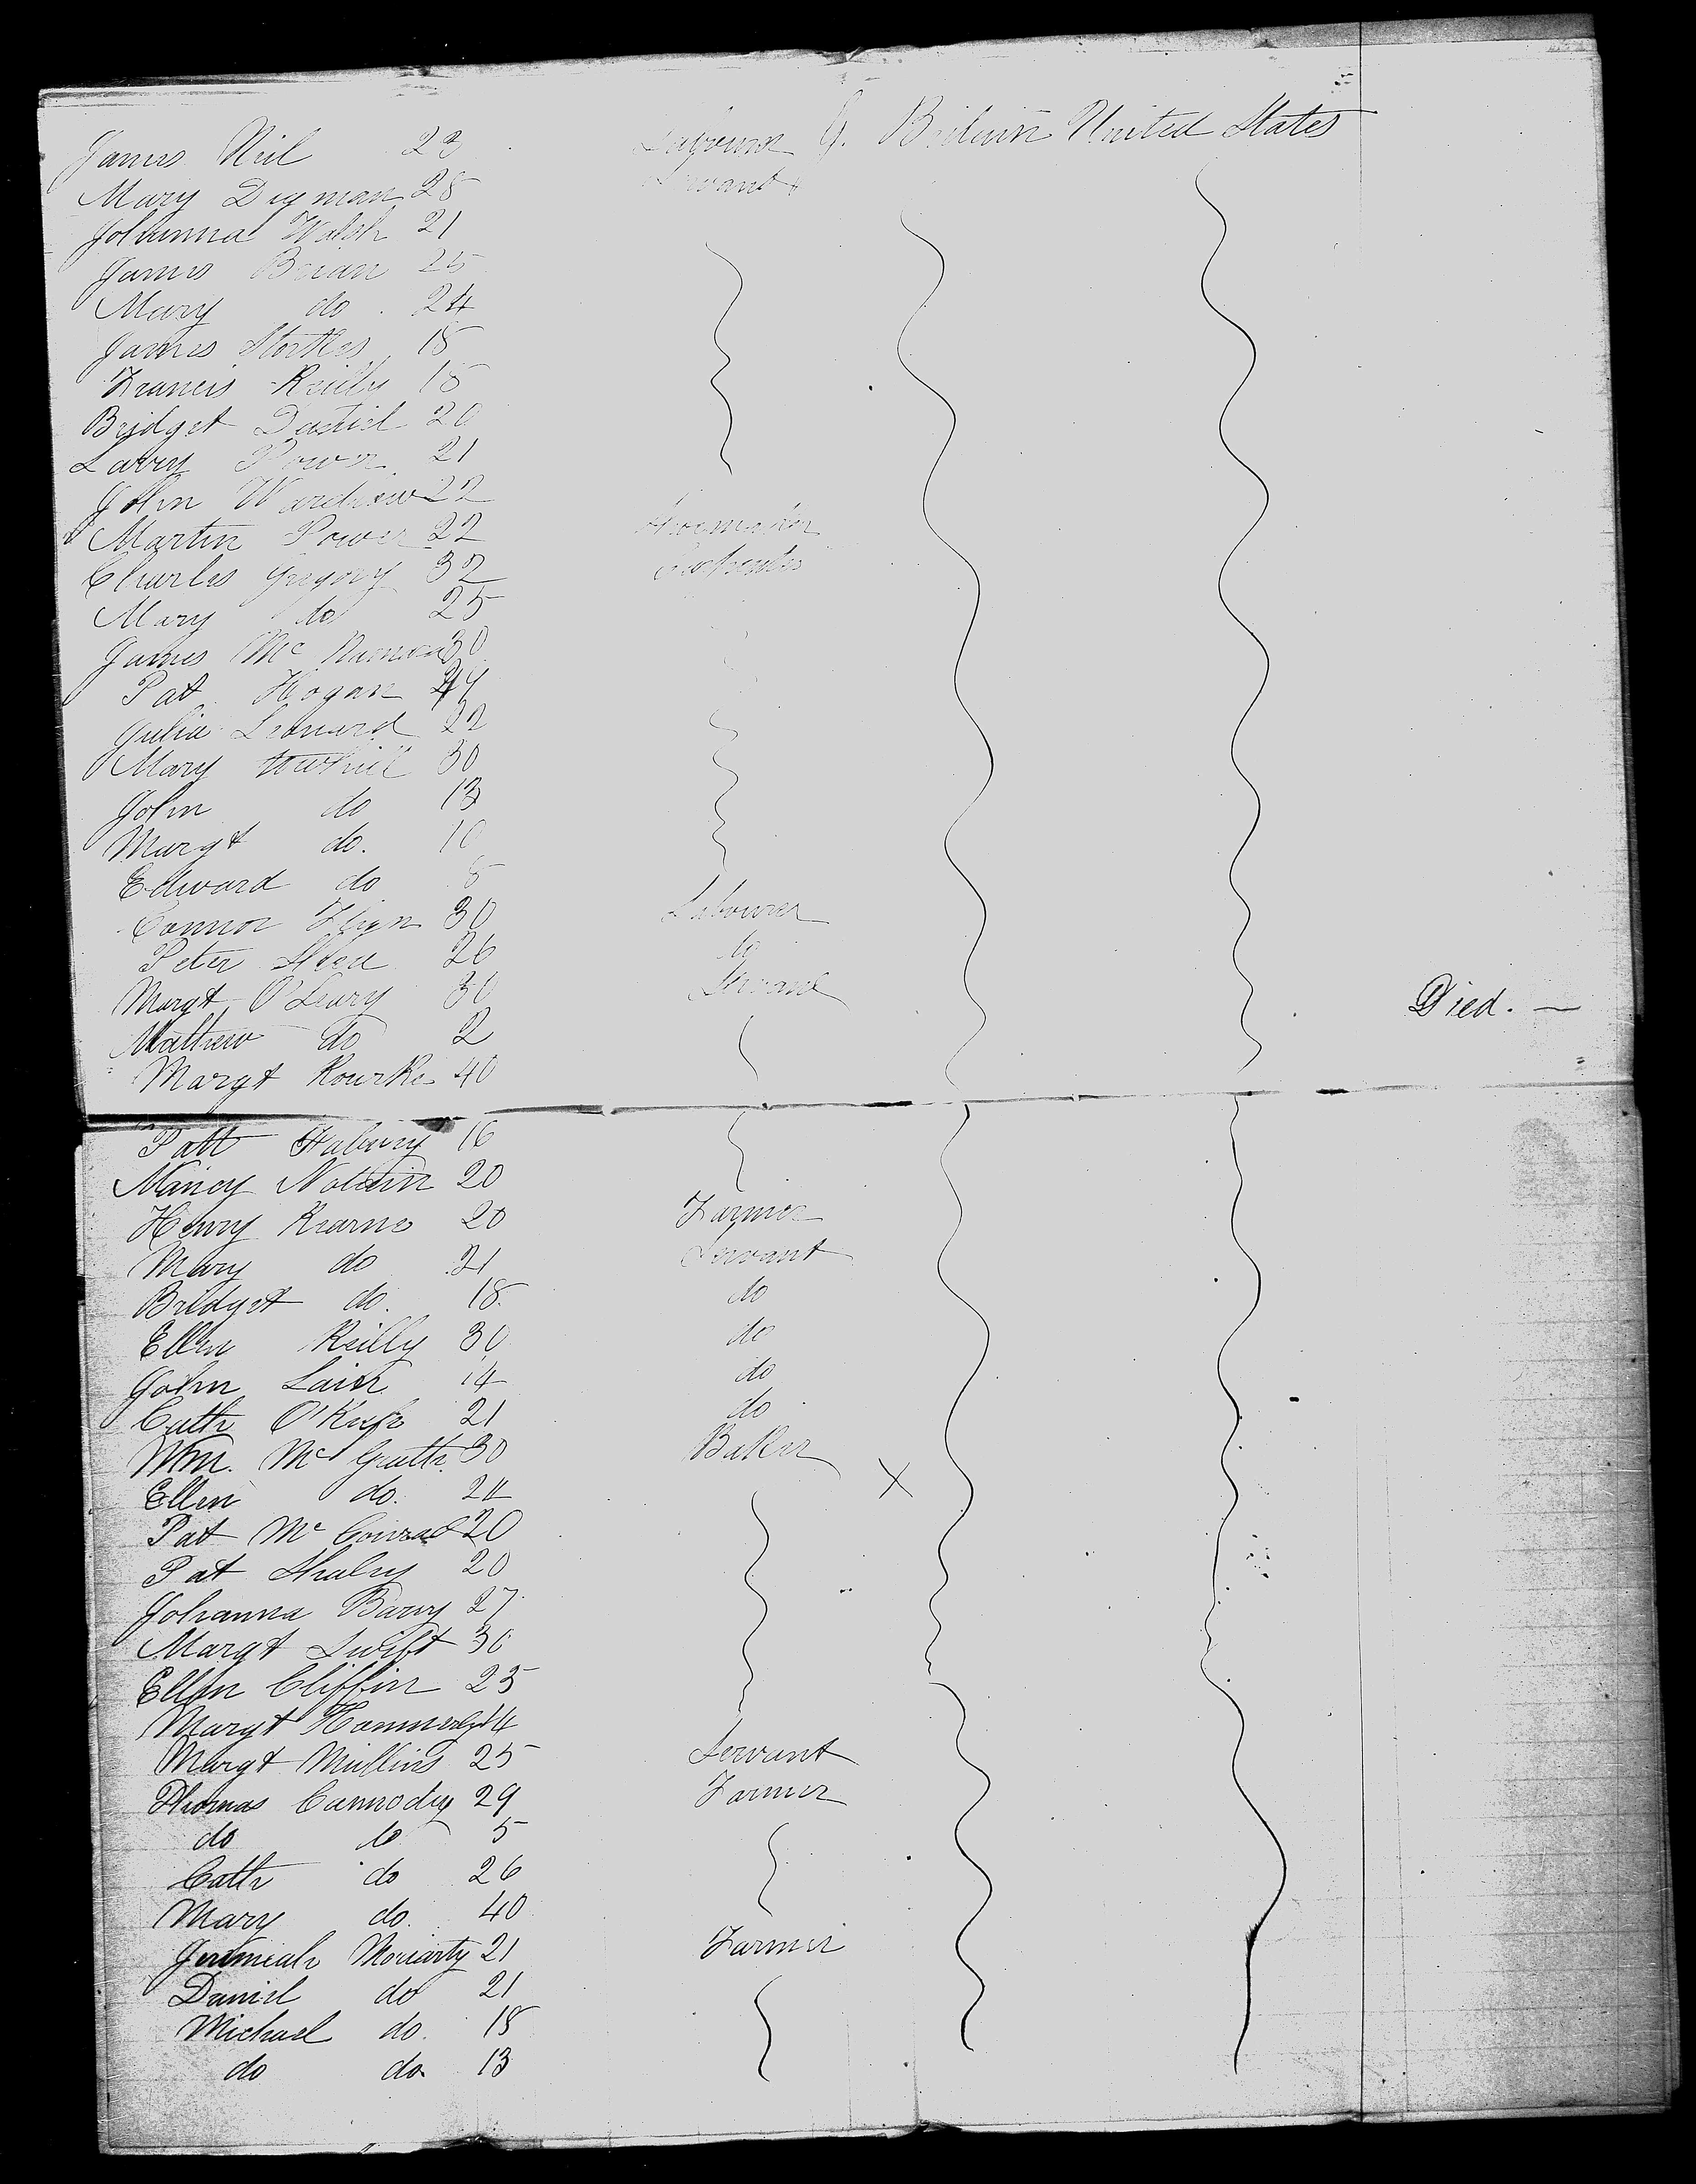 James Neil 23 Labourer G. Britain United States
Mary Digman 28 Servant
Johanna Walsh 21
James Brian 25
Mary do 24
James 18
Francis Reilly 18
Bridget Daniel 20
Larry Power 21
John 22
Martin Power 22 Shoemaker
Charles Gregory 32 Carpenter
Mary do 25
James Mc 30
Pat Hogan
Julia Leonard 22
Mary 30
John do 13
Margt do. 10
Edward do 8
Connor 30 Labourer
Peter 26 do
Margt O'Leary 30 Servant
Mathew do 2 Died. —
Margt Rourke 40
Patt 16
Nancy 20
Henry Kearns 20 Farmer
Mary do 21 Servant
Bridget do. 18. do
Ellen Reilly 30 do
John 14 do
Cath O'Keefe 21 do
Wm. Mc Grath 30 Baker X
Ellen do. 24
Pat Mc 20
Pat 20
Johanna Barry 27
Margt Swift 30
Ellen Cliffin 23
Margt 14
Margt Mullins 25 Servant
Thomas Carmody 29 Farmer
do do 5
Cath do 26
Mary do. 40
Jeremiah Moriarty 21 Farmer
Daniel do 21
Michael do. 18
do do 13